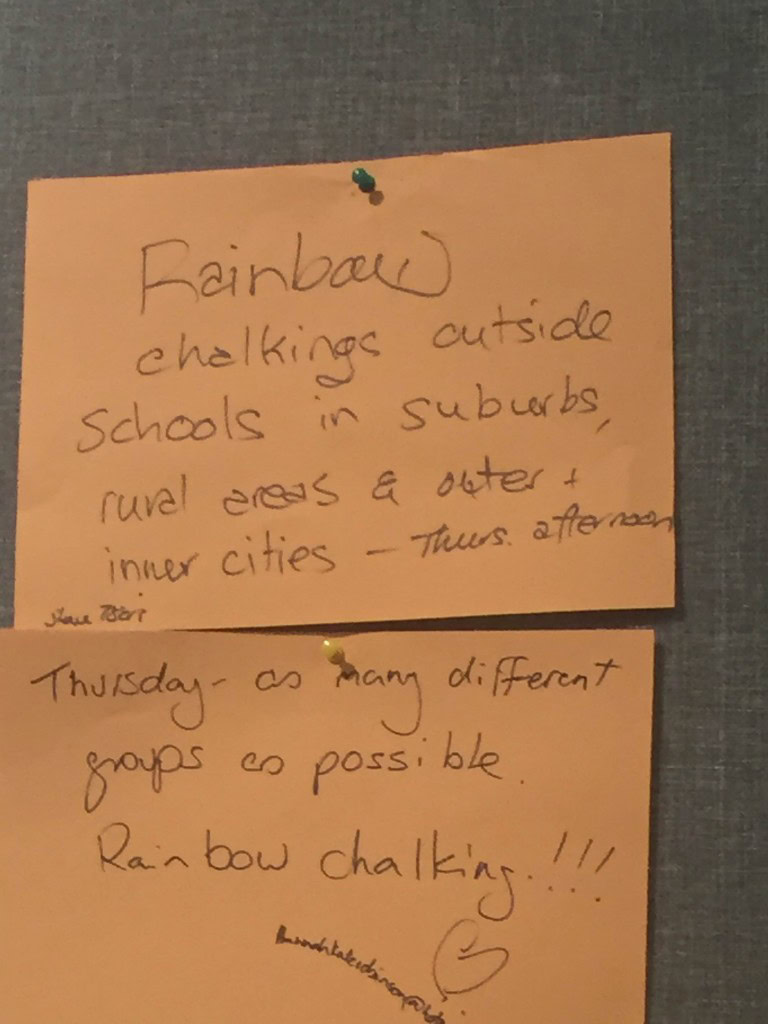 Rainbow
chalkings outside
schools in suburbs,
rural areas & outer +
inner cities - Thurs. afternoon
Thursday - as many different
groups as possible.
Rainbow chalking.!!!